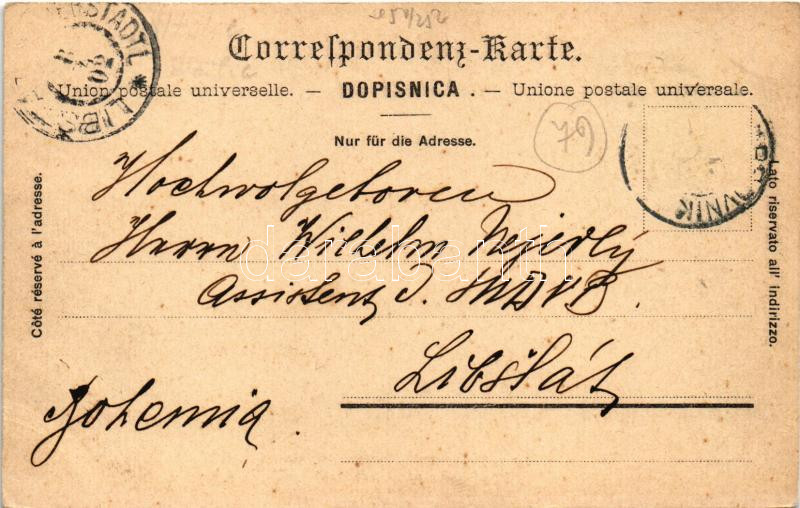 Correspondenz-Karte.
Union postale universelle. — DOPISNICA. — Unione postale universale.
Nur für die Adresse.
Côté réservé à l'adresse.
Lato riservato all' indirizzo.
Hochwolgeboren
Herrn Wilhelm Nejedlý
Assistent d.
Libštát
Bohemia.
darabanth